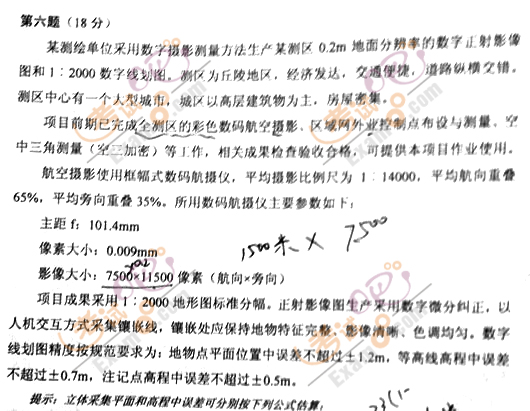 第六题(18分)
某测绘单位采用数字摄影测量方法生产某测区0.2m地面分辨率的数字正射影像
图和1:2000数字线划图。测区为丘陵地区,经济发达,交通便捷,道路纵横交错。
测区中心有一个大型城市,城区以高层建筑物为主,房屋密集。
项目前期已完成全测区的彩色数码航空摄影、区域网外业控制点布设与测量、空
中三角测量(空三加密)等工作,相关成果检查验收合格,可提供本项目作业使用。
航空摄影使用框幅式数码航摄仪,平均摄影比例尺为1:14000,平均航向重叠
65%,平均旁向重叠35%。所用数码航摄仪主要参数如下:
主距f:101.4mm
像素大小:0.009mm
1500米×7500
影像大小:7500×11500像素(航向×旁向)
项目成果采用1:2000地形图标准分幅。正射影像图生产采用数字微分纠正,以
人机交互方式采集镶嵌线,镶嵌处应保持地物特征完整、影像清晰、色调均匀。数字
线划图精度按规范要求为:地物点平面位置中误差不超过±1.2m,等高线高程中误差
不超过±0.7m,注记点高程中误差不超过±0.5m。
提示:立体采集平面和高程中误差可分别按下列公式估算: